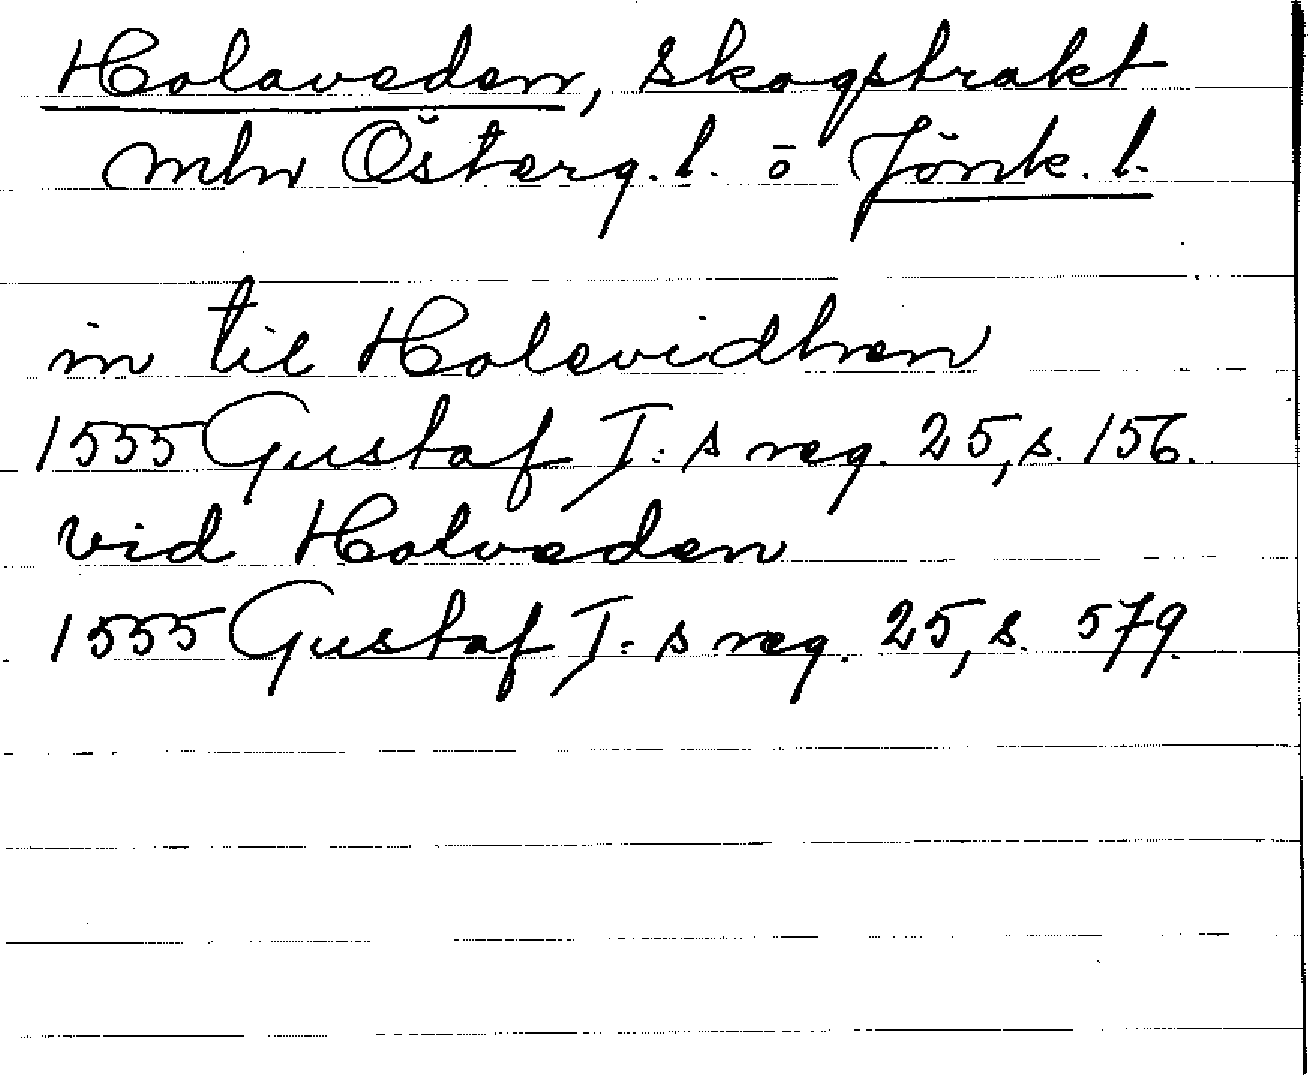 Holaveden, skogstrakt
mln Österg. l. o Jönk. l.
in til Holevidhen
1555 Gustaf I:s reg. 25, s. 156.
vid Holveden
1555 Gustaf I:s reg. 25, s. 579.